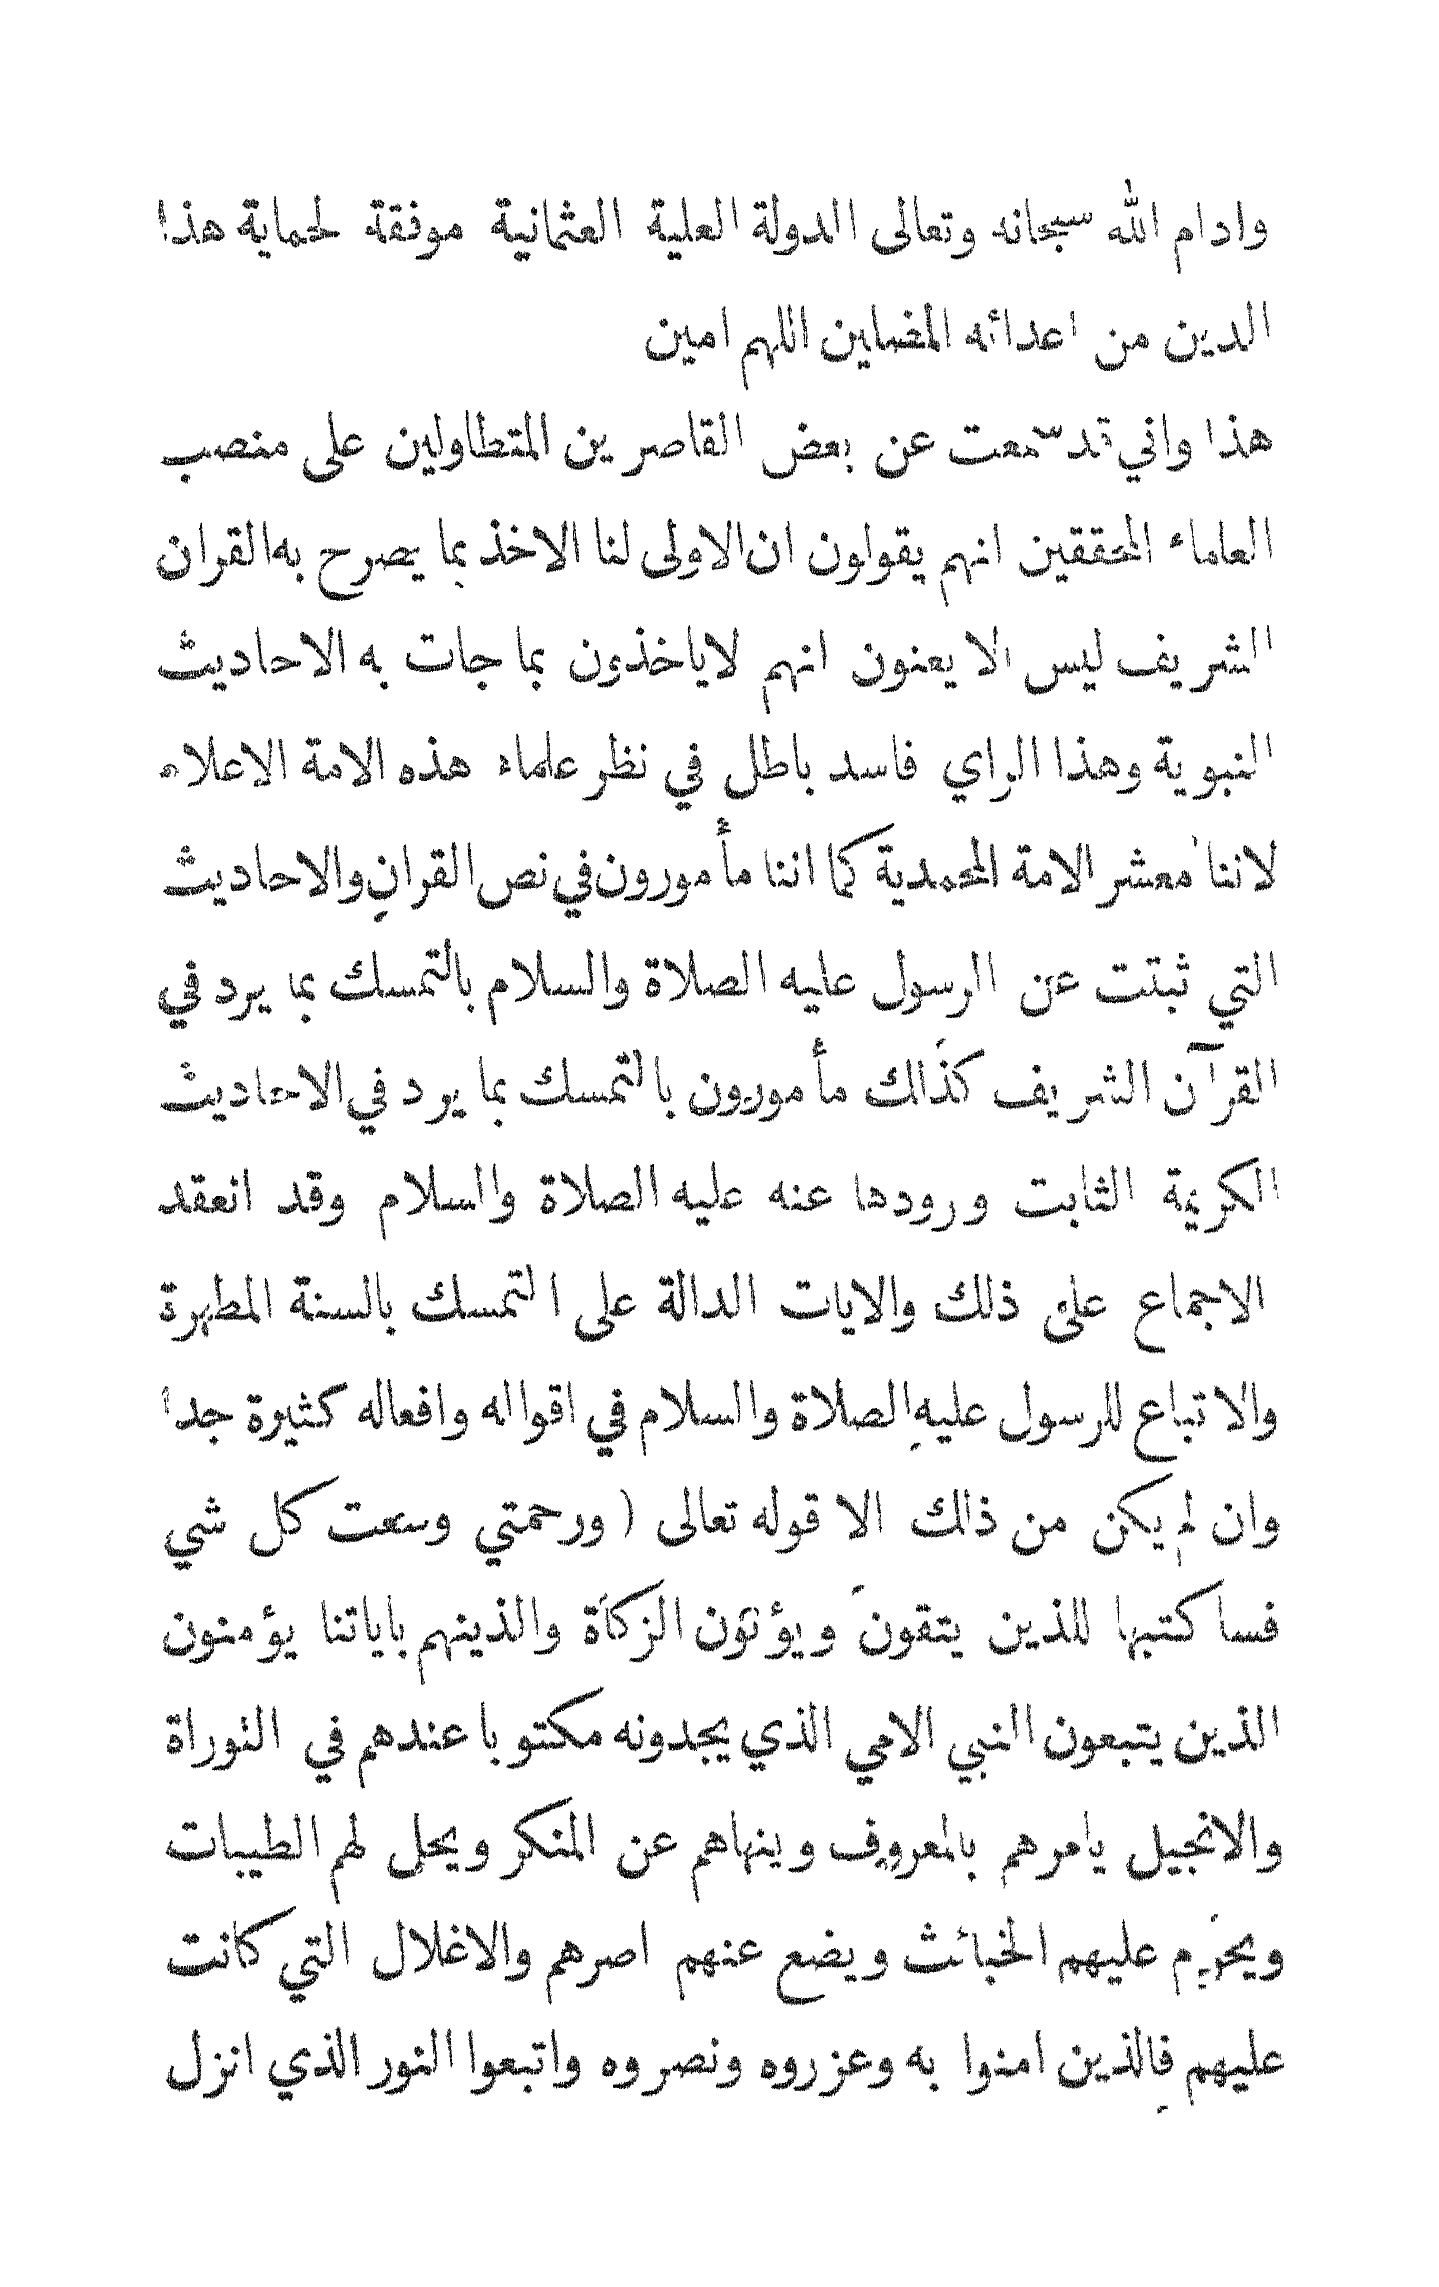 وادام الله سبحانه وتعالى الدولة العلية العثمانية موفقة لحماية هذا
الدين من اعدائه المضلين اللهم امين
هذا واني قد سمعت عن بعض القاصرين المتطاولين على منصب
العلماء المحققين انهم يقولون ان الاولى لنا الاخذ بما يصرح به القران
الشريف ليس الا يعنون انهم لاياخذون بما جات به الاحاديث
النبوية وهذا الراي فاسد باطل في نظر علماء هذه الامة الاعلام
لاننا معشر الامة المحمدية كما اننا مأمورون في نص القران والاحاديث
التي ثبتت عن الرسول عليه الصلاة والسلام بالتمسك بما يرد في
القرآن الشريف كذالك مأمورون بالتمسك بما يرد في الاحاديث
الكريمة الثابت ورودها عنه عليه الصلاة والسلام وقد انعقد
الاجماع على ذلك والايات الدالة على التمسك بالسنة المطهرة
والاتباع للرسول عليه الصلاة والسلام في اقواله وافعاله كثيرة جدا
وان لم يكن من ذلك الا قوله تعالى ( ورحمتي وسعت كل شي
فساكتبها للذين يتقون ويؤتون الزكاة والذينهم باياتنا يؤمنون
الذين يتبعون النبي الامي الذي يجدونه مكتوبا عندهم في التوراة
والانجيل يامرهم بالمعروف وينهاهم عن المنكر ويحل لهم الطيبات
ويحرم عليهم الخبائث ويضع عنهم اصرهم والاغلال التي كانت
عليهم فالذين امنوا به وعزروه ونصروه واتبعوا النور الذي انزل